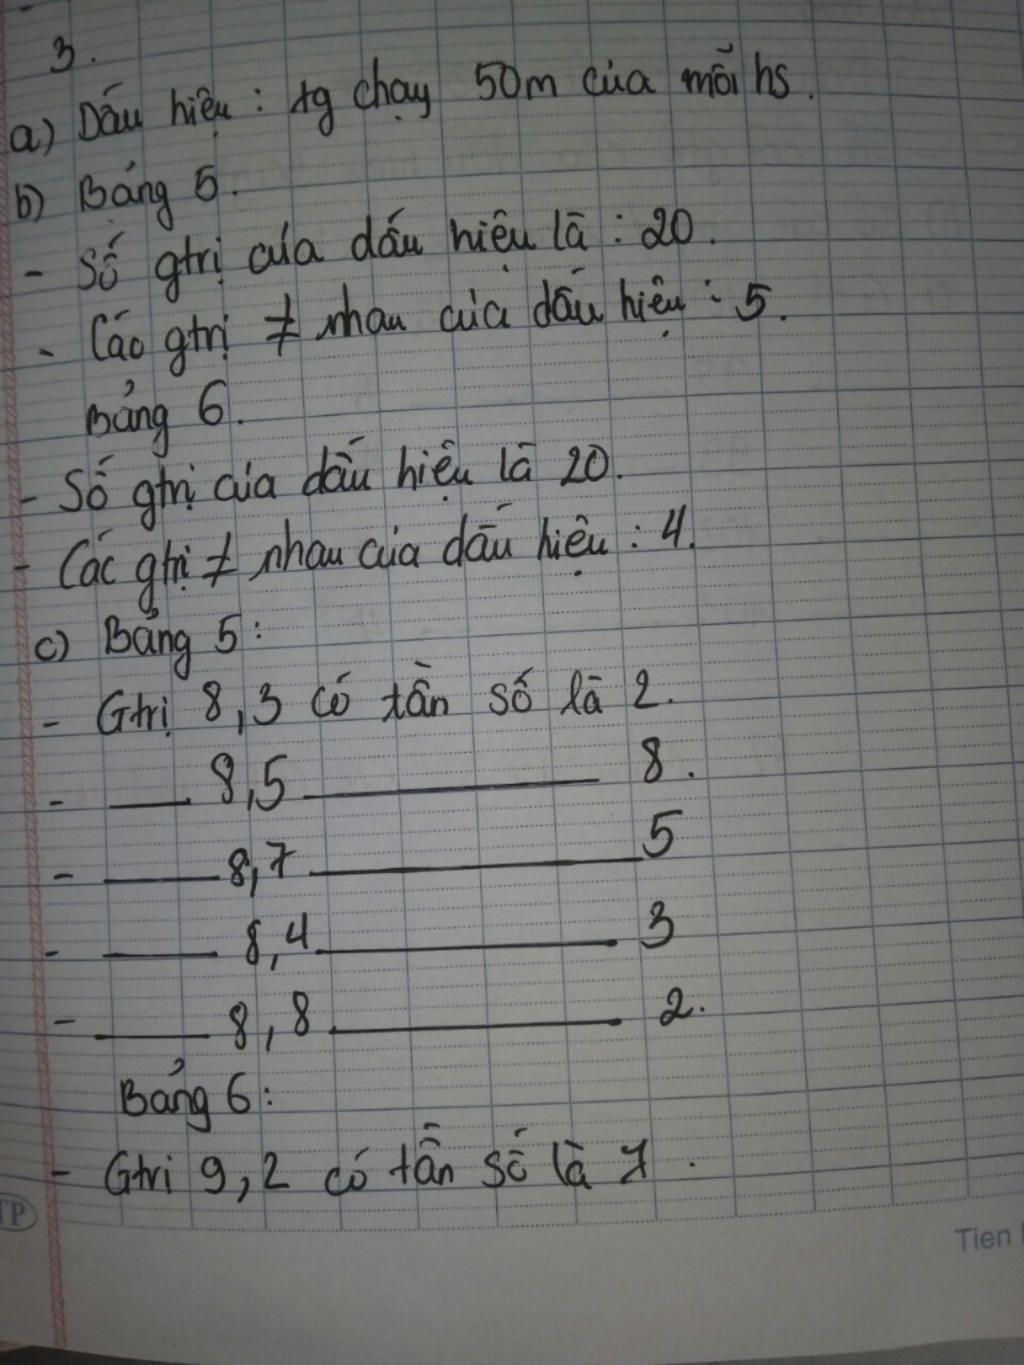 3.
a) Dấu hiệu : tg chạy 50m của mỗi hs.
b) Bảng 5.
- Số gtrị của dấu hiệu là : 20.
- Các gtrị ≠ nhau của dấu hiệu : 5.
Bảng 6.
- Số gtrị của dấu hiệu là 20.
- Các gtrị ≠ nhau của dấu hiệu : 4.
c) Bảng 5 :
- Gtrị 8,3 có tần số là 2.
- ___ 8,5 ___ 8.
- ___ 8,7 ___ 5
- ___ 8,4 ___ 3
- ___ 8,8 ___ 2.
Bảng 6 :
- Gtri 9,2 có tần số là 7.
TP
Tien